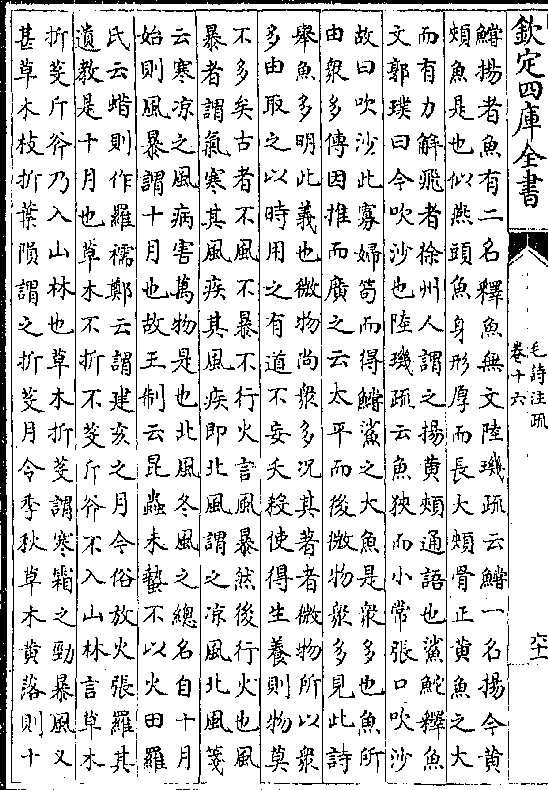 欽定四庫全書
毛詩注疏
卷十六
六十二
鱨揚者魚有二名釋魚無文陸璣疏云鱨一名揚今黄
頰魚是也似燕頭魚身形厚而長大頰骨正黄魚之大
而有力解飛者徐州人謂之揚黄頰通語也鯊鮀釋魚
文郭璞曰今吹沙也陸璣疏云魚狹而小常張口吹沙
故曰吹沙此寡婦笱而得鱨鯊之大魚是衆多也魚所
由衆多傳因推而廣之云太平而後微物衆多見此詩
舉魚多明此義也微物尚衆多况其著者微物所以衆
多由取之以時用之有道不妄夭殺使得生養則物莫
不多矣古者不風不暴不行火言風暴然後行火也風
暴者謂氣寒其風疾其風疾即北風謂之凉風北風箋
云寒凉之風病害萬物是也北風冬風之總名自十月
始則風暴謂十月也故王制云昆蟲未蟄不以火田羅
氏云蜡則作羅襦鄭云謂建亥之月今俗放火張羅其
遺教是十月也草木不折不芟斤斧不入山林言草木
折芟斤斧乃入山林也草木折芟謂寒霜之勁暴風又
甚草木枝折葉隕謂之折芟月令季秋草木黄落則十